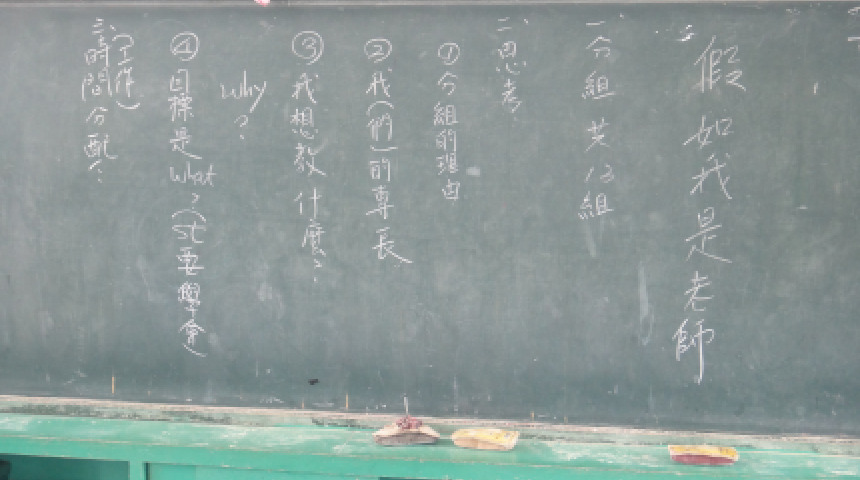 假如我是老師
一、分組 共12組
二、思考
①分組的理由
②我(們)的專長
③我想教什麼?
why?
④目標是what?(st要學會)
三、時間分配?
(工作)